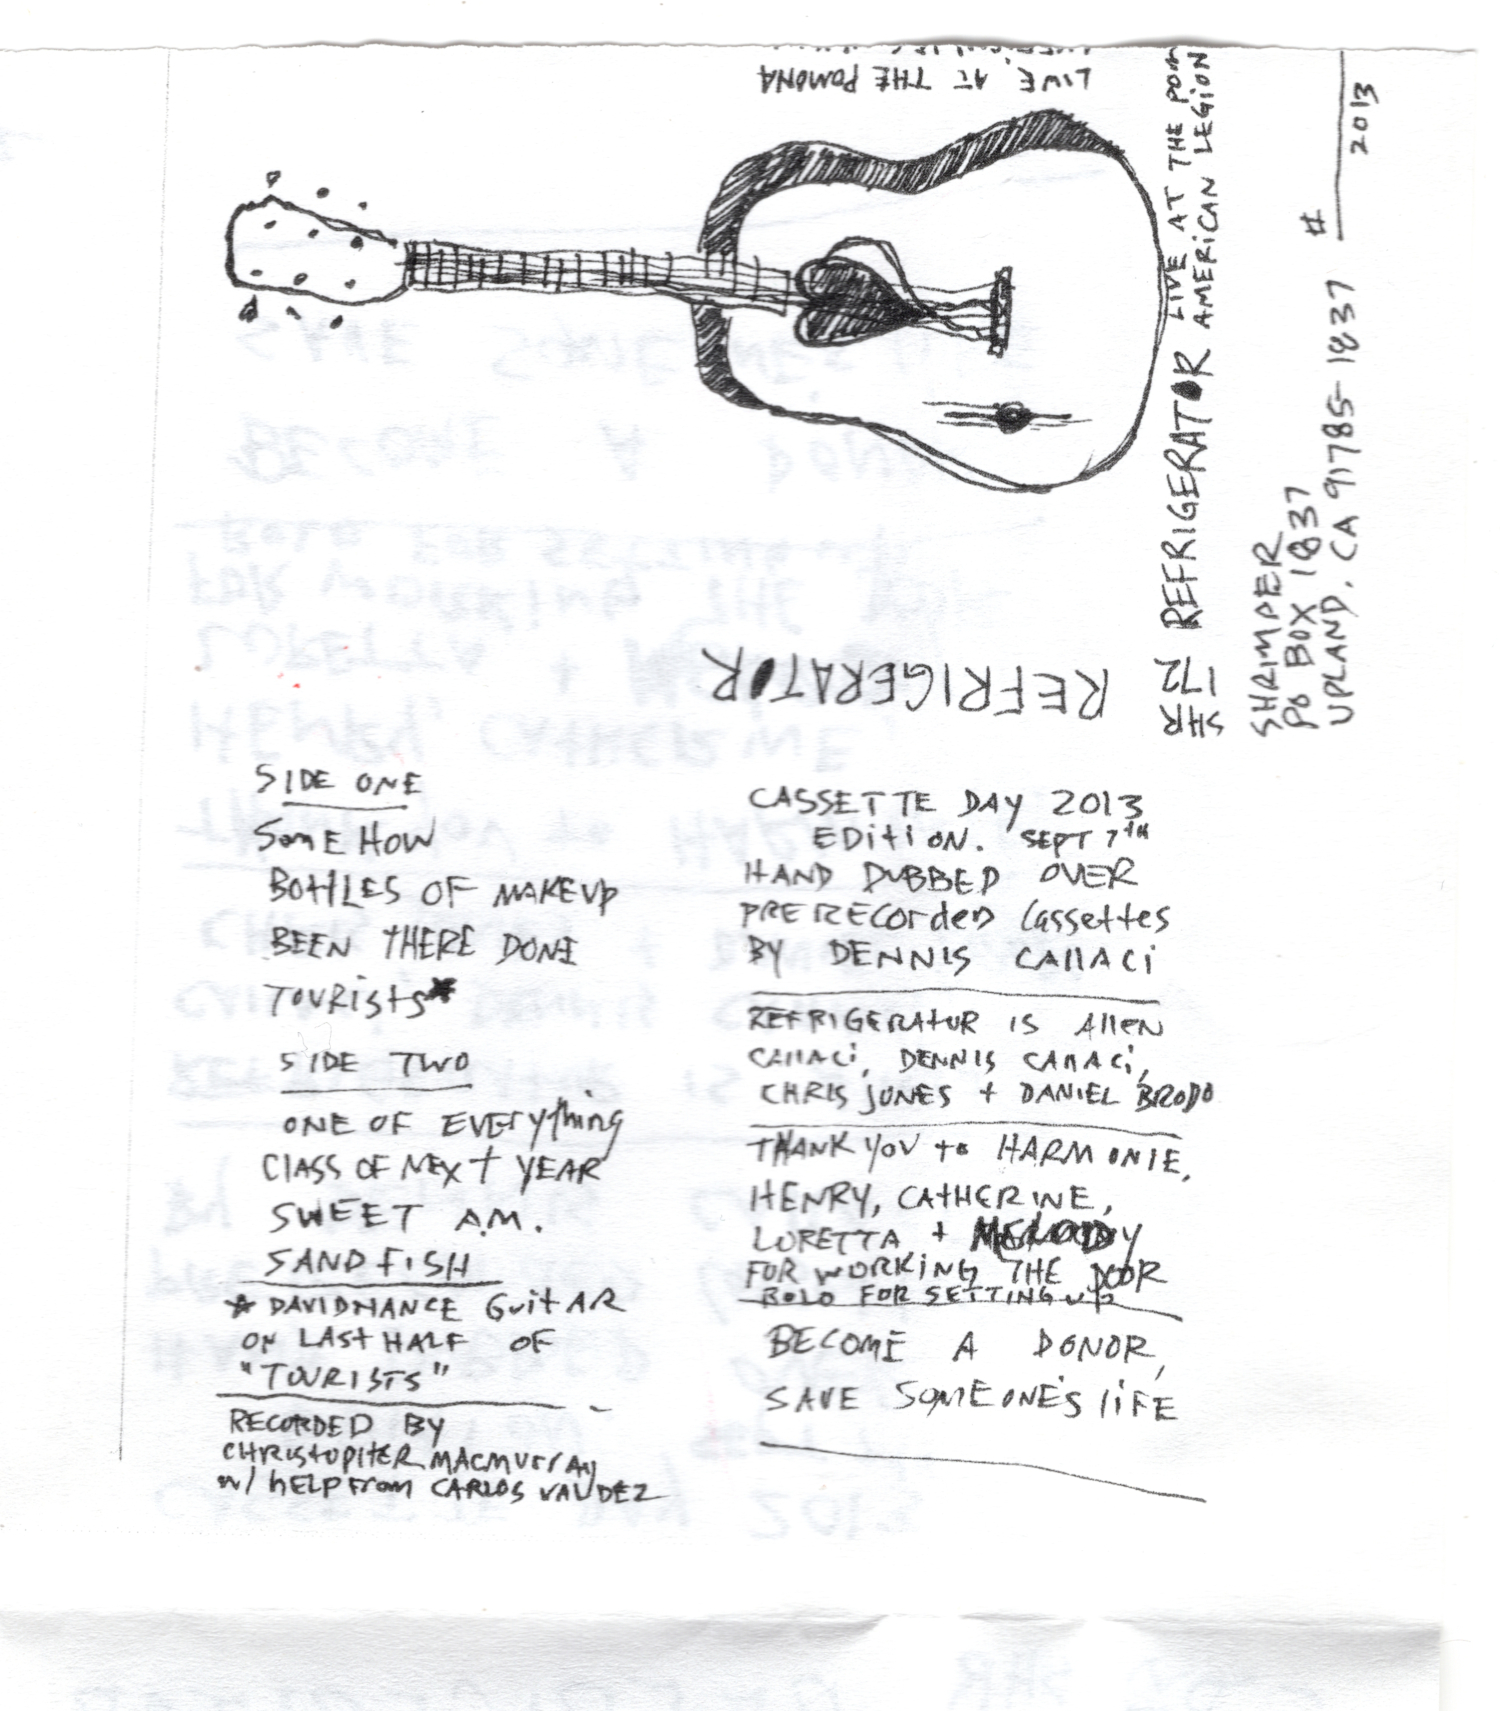 LIVE AT THE POMONA
REFRIGERATOR
SHR
172
REFRIGERATOR
LIVE AT THE POM
AMERICAN LEGION
SHRIMPER
PO BOX 1837
UPLAND, CA 91785-1837
# 2013
SIDE ONE
SomE HOW
BOttLES OF MAKEUP
BEEN tHERE DONE
TOURists*
SIDE TWO
ONE OF EVERything
ClASS OF NEXt YEAR
SWEET A.M.
SAND FISH
* DAVID NANCE GuitAR
ON LAST HALF OF
"TOURISTS"
RECORDED BY
CHRIStOPHER MACMUrrAy
w/ hELP From CARLOS VALDEZ
CASSETTE DAY 2013
EDitiON. SEPT 7TH
HAND DUBBED OVER
PRERECorded Cassettes
BY DENNIS CAllACi
REFRIGERAtOR IS AllEN
CAllACi, DENNIS CAllACi,
CHRIS JONES + DANIEL BRODO
THANK YOU to HARMONIE,
HENRY, CAtHERINE,
LORETTA + MELODY
FOR WORKING THE DOOR
BOLO FOR SETTING UP
BECOME A DONOR,
SAVE SOMEONE'S liFE